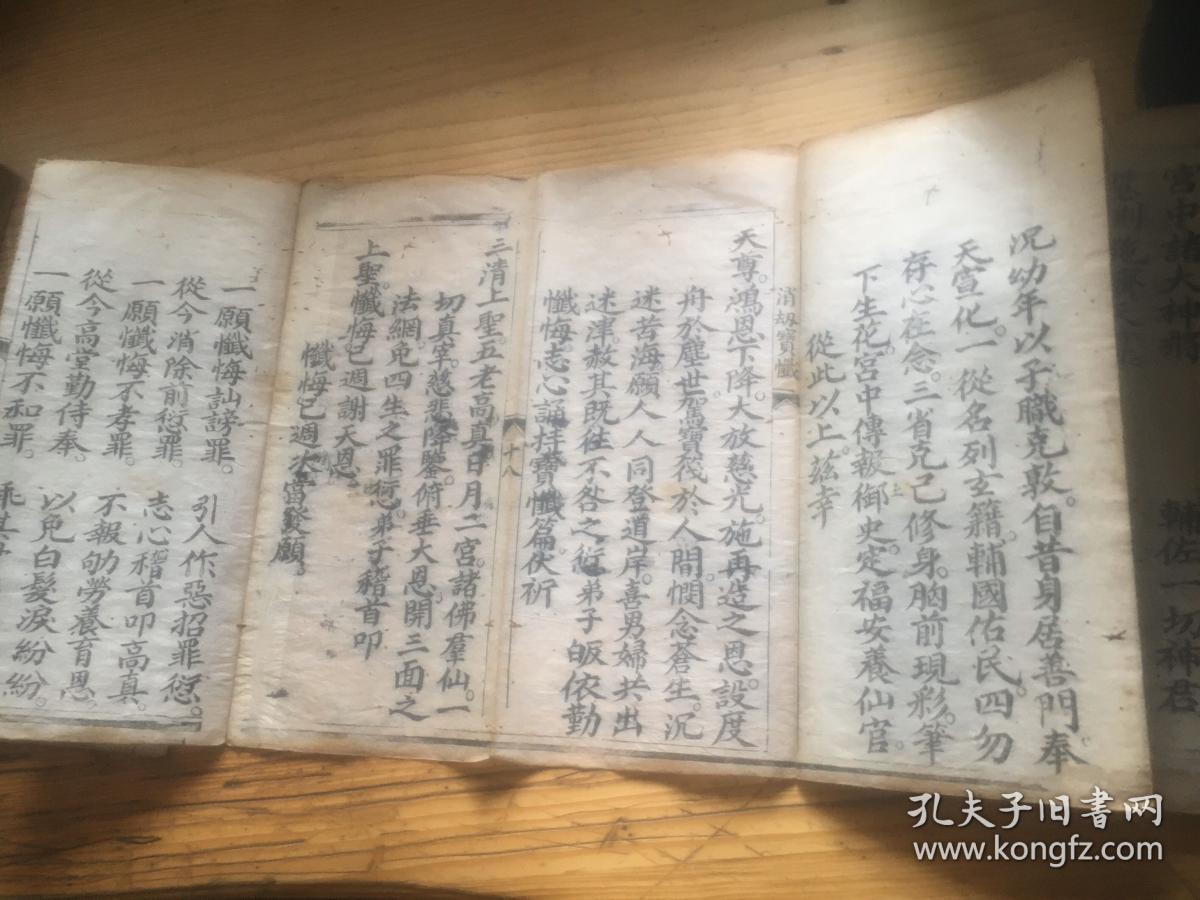 宮中諸大神將
輔佐一切神君
沉幼年以子職克敦。自昔身居善門。奉
天宣化。一從名列玄籍。輔國佑民。四勿
存心在念。三省克己修身。胸前現彩筆。
下生花。宮中傳報御史。定福安養仙官。
從此以上。茲幸
消劫寶懺
天尊。鴻恩下降。大放慈光。施再造之恩。設度
舟於塵世。駕寶筏於人間。憫念蒼生。沉
迷苦海。願人人同登道岸。喜男婦共出
迷津。赦其既往不咎之愆。弟子皈依勤
懺悔。志心誦持寶懺篇。伏祈
十八
三清上聖。五老高真。日月二宮。諸佛羣仙。一
切真宰。慈悲降鑒。俯垂大恩。開三面之
法網。免四生之罪愆。弟子稽首叩
上聖。懺悔已週謝天恩。
懺悔已週。次當發願。
一願懺悔訕謗罪。引人作惡招罪愆。
從今消除前愆罪。志心稽首叩高真。
一願懺悔不孝罪。不報劬勞養育恩。
從今高堂勤侍奉。以免白髮淚紛紛。
一願懺悔不和罪。
孔夫子旧书网
www.kongfz.com